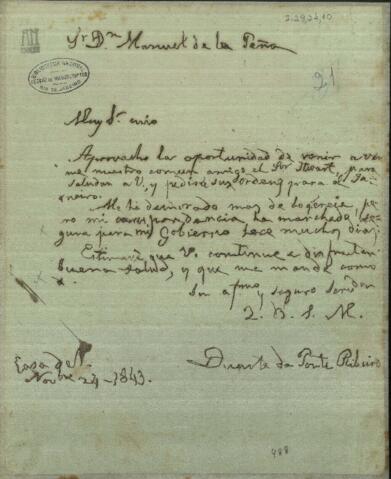 I-29,24,10
Sr Dn Manuel de la Peña
BIBLIOTHECA NACIONAL
RIO DE JANEIRO
21
Muy Sr mio
Aprovecho la oportunidad de venir a ver
me nuestro comun amigo el Sor para
saludar a V, y pedirle sus ordenes para el Ja-
neiro.
Me he demorado mas de lo pe-
ro mi correspondencia ha marchado se-
gura para mi Gobierno hace muchos dias
Estimaré que V. continue a disfrutar
buena salud, y que me mande como
su afmo y seguro servidor
Q. B. S. M.
Duarte da Ponte Ribeiro
Casa de V.
Novbre 24 - 1843.
488